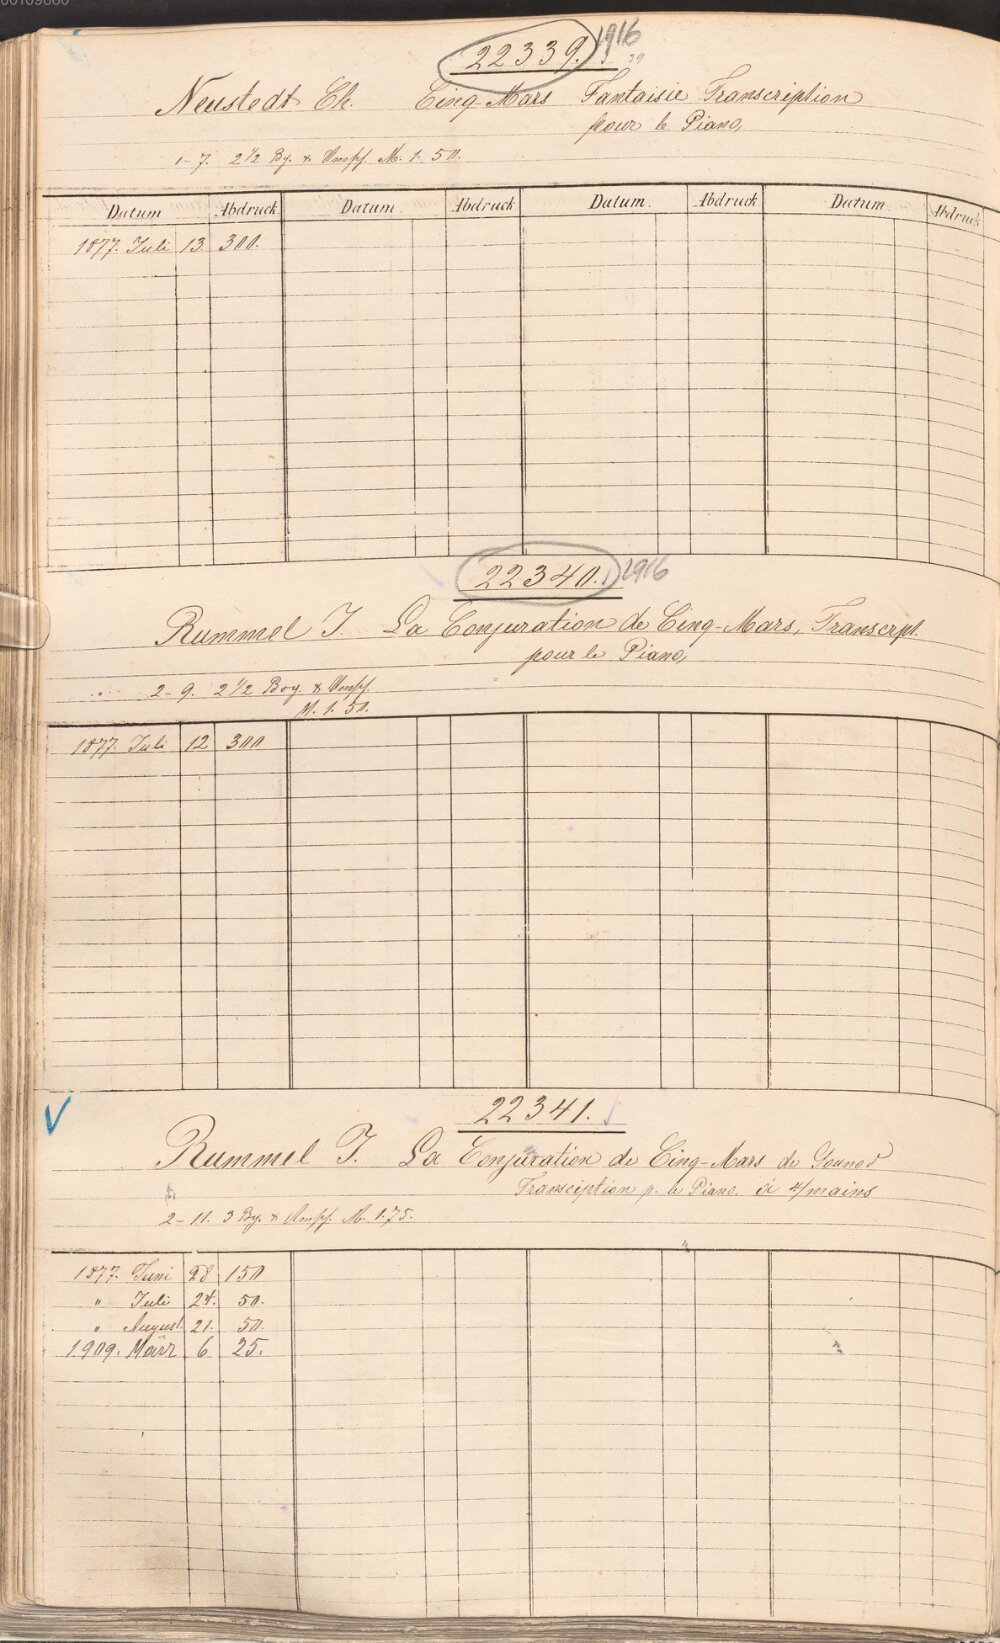 22339. 1916
Neustedt Ch. Cinq-Mars Fantaisie Transcription
pour le Piano,
1-7. 2 1/2 Bg. & Umschl. M. 1. 50.
Datum Abdruck Datum. Abdruck Datum. Abdruck Datum. Abdruck
1877. Juli 13 300.
22340. 1916
Rummel J. La Conjuration de Cinq-Mars, Transcrpt.
pour le Piano,
2-9. 2 1/2 Bog. &
M. 1. 50.
1877. Juli 12 300
22341.
Rummel J. La Conjuration de Cinq-Mars de Gounod
Transciption p. le Piano. à 4/mains
2-11. 3 Bg. & M. 1.75.
1877. Juni 28 150
" Juli 24. 50.
" August 21. 50.
1909. März 6 25.